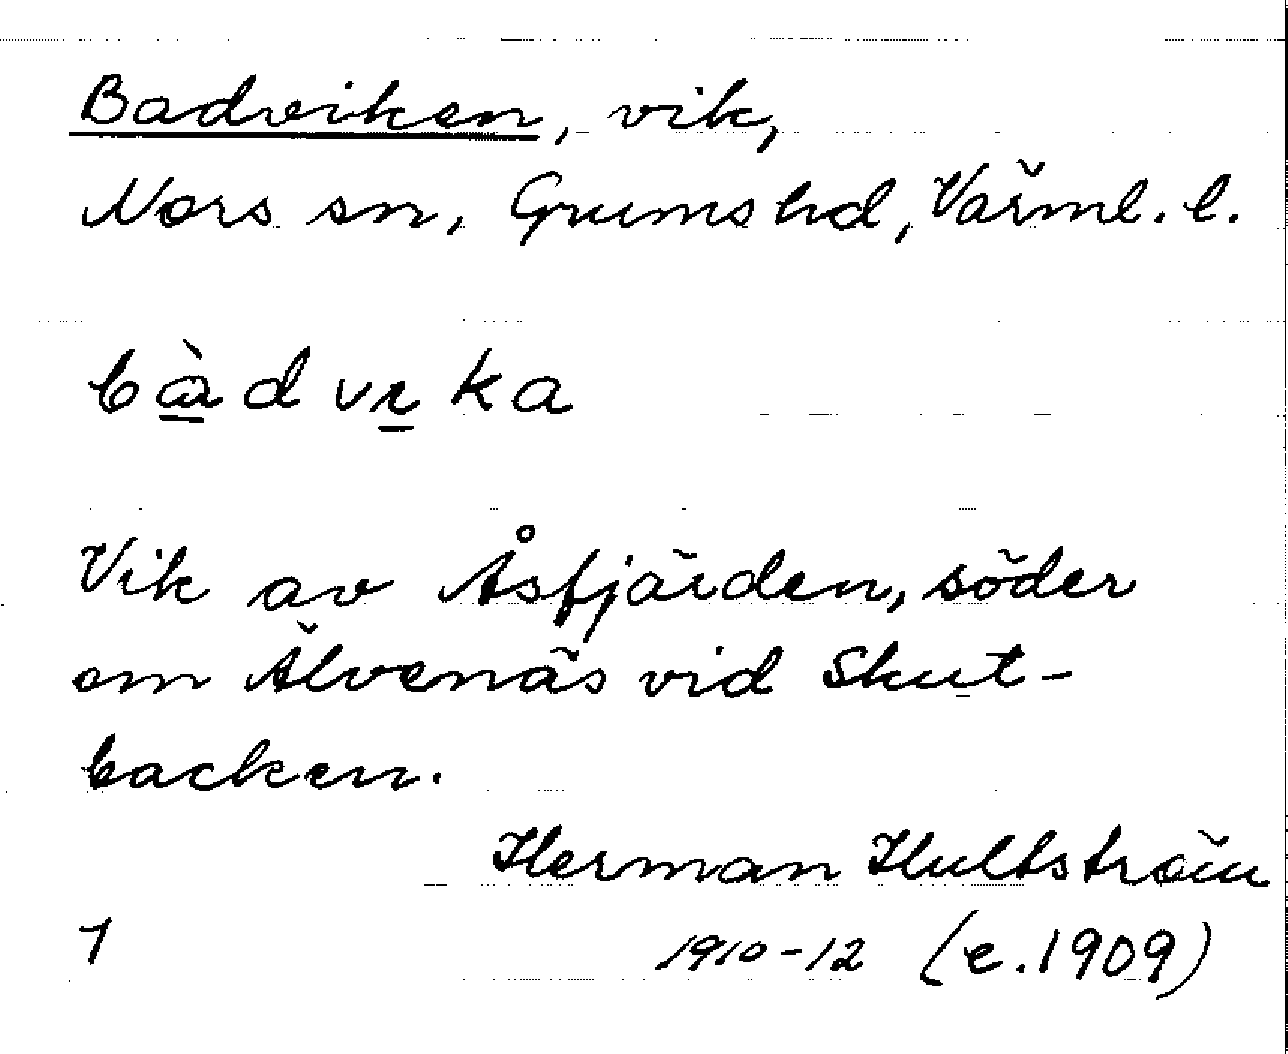 Badviken, vik,
Nors sn, Grums hd, Värml. l.
bà̱dvɩ̱ka
Vik av Åsfjärden, söder
om Älvenäs vid Skut-
backen.
Herman Hultström
1 1910-12 (e. 1909)